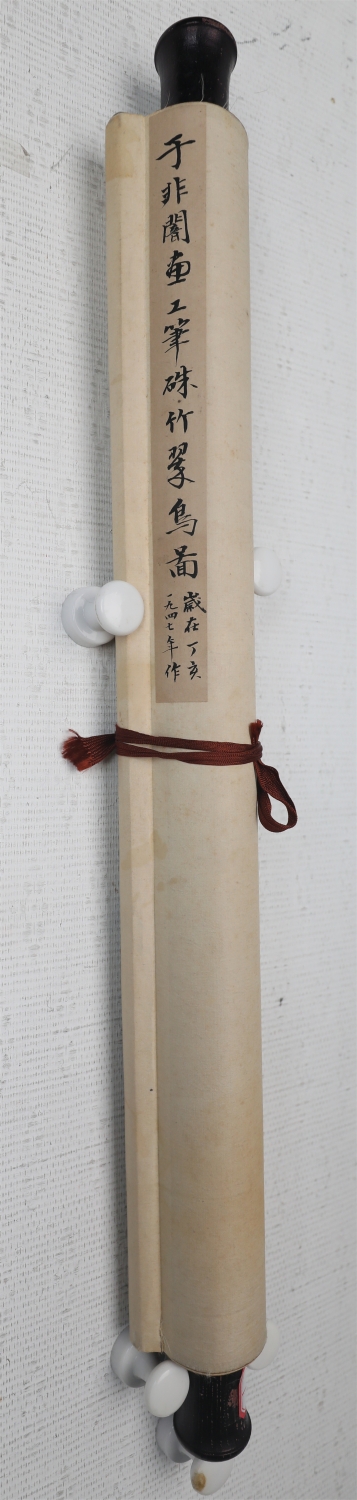 于非闇画工筆硃竹翠鳥畐
歲在丁亥
一九四七年作